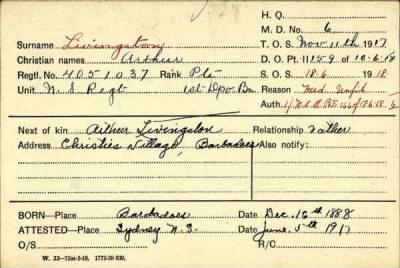 H. Q.
M. D. No. 6
Surname Livingston T. O. S. Nov 11th 1917
Christian names Arthur D. O. Pt. II 159 of 10-6-18
Regtl. No. 4051037 Rank Pte S. O. S. 18-6 1918
Unit N. S. Regt 1st Dpo. Bn Reason Med. Unfit
Auth.
Next of kin Arthur Livingston Relationship Father
Address Christies Village, Barbadoes Also notify:
BORN—Place Barbadoes Date Dec. 16th 1888
ATTESTED—Place Sydney N. S. Date June 5th 1917
O/S R/C
W. 22—75M-5-18. 1772-39-839.